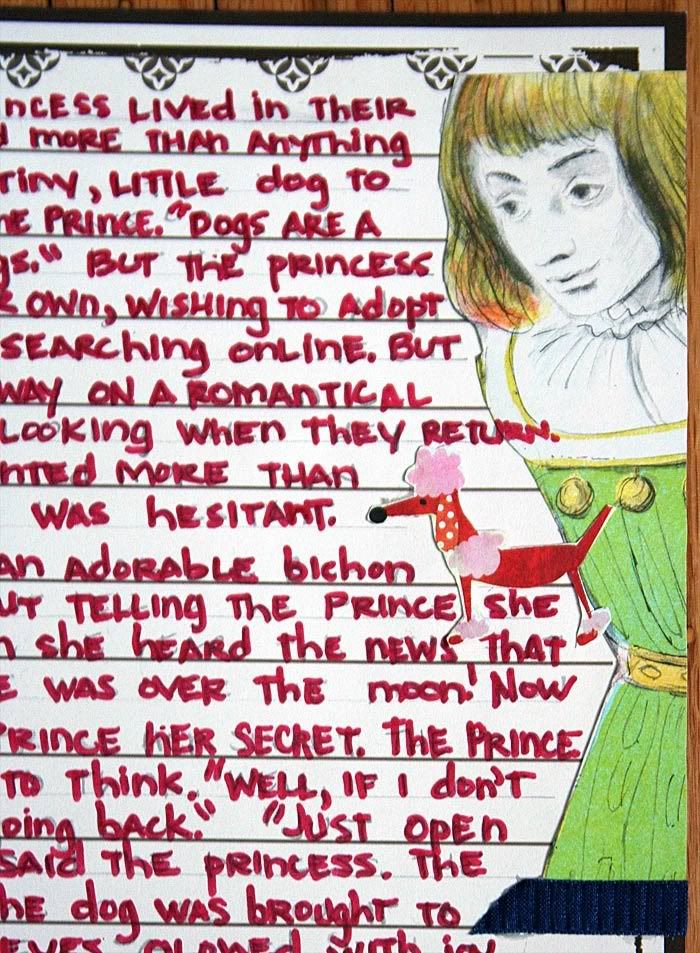 NCESS LIVED in THEIR
MORE THAN AnyThing
Tiny, LITTLE dog TO
HE PRINCE. "DOGS ARE A
gs." BUT THE PRINCESS
OWN, WISHING TO AdOPT
SEARChing OnLinE. BUT
WAY ON A ROMANTICAL
LOOKING WHEN THEY RETURN.
NTED MORE THAN
WAS hESITANT.
AN AdORABLE bichon
UT TELLing The PRINCE She
She hEARd The nEWS ThAT
E WAS OVER The moon! Now
PRINCE HER SECRET. The PRINCE
TO Think. "WELL, IF I don't
oing bACK." "JUST OPEn
SAid The PRINCESS. The
he dog WAS bROUGhT TO
EYES gLOWEd with joy